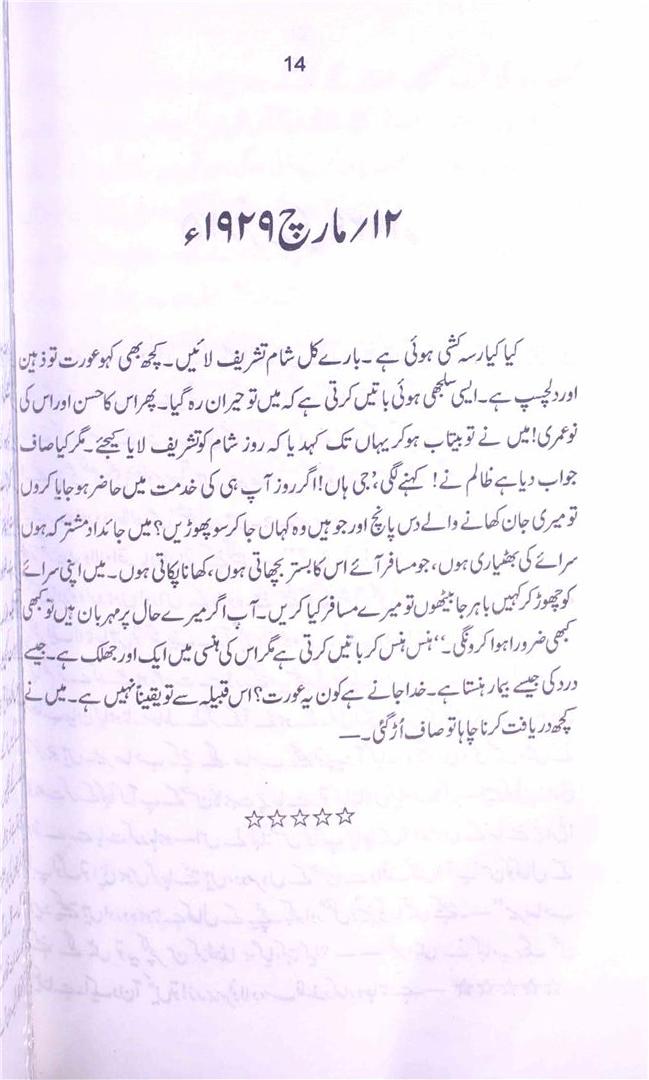 14
۱۲/مارچ ۱۹۲۹ء
کیا کیا رسہ کشی ہوئی ہے ۔ بارے کل شام تشریف لائیں ۔ کچھ بھی کہو عورت تو ذہین
اور دلچسپ ہے۔ ایسی سلجھی ہوئی باتیں کرتی ہے کہ میں تو حیران رہ گیا۔ پھر اس کا حسن اور اس کی
نو عمری! میں نے تو بیتاب ہو کر یہاں تک کہدیا کہ روز شام کو تشریف لایا کیجئے۔ مگر کیا صاف
جواب دیا ہے ظالم نے! کہنے لگی، ’جی ہاں! اگر روز آپ ہی کی خدمت میں حاضر ہو جایا کروں
تو میری جان کھانے والے دس پانچ اور جو ہیں وہ کہاں جا کر سو پھوڑیں؟ میں جائداد مشترکہ ہوں
سرائے کی بھٹیاری ہوں، جو مسافر آئے اس کا بستر بچھاتی ہوں، کھانا پکاتی ہوں۔ میں اپنی سرائے
کو چھوڑ کر کہیں باہر جا بیٹھوں تو میرے مسافر کیا کریں۔ آپ اگر میرے حال پر مہربان ہیں تو کبھی
کبھی ضرور ہوا کرونگی۔‘‘ ہنس ہنس کر باتیں کرتی ہے مگر اس کی ہنسی میں ایک اور جھلک ہے۔ جیسے
درد کی جیسے بیمار ہنستا ہے۔ خدا جانے ہے کون یہ عورت؟ اس قبیلہ سے تو یقیناً نہیں ہے۔ میں نے
کچھ دریافت کرنا چاہا تو صاف اُڑ گئی۔—
☆☆☆☆☆